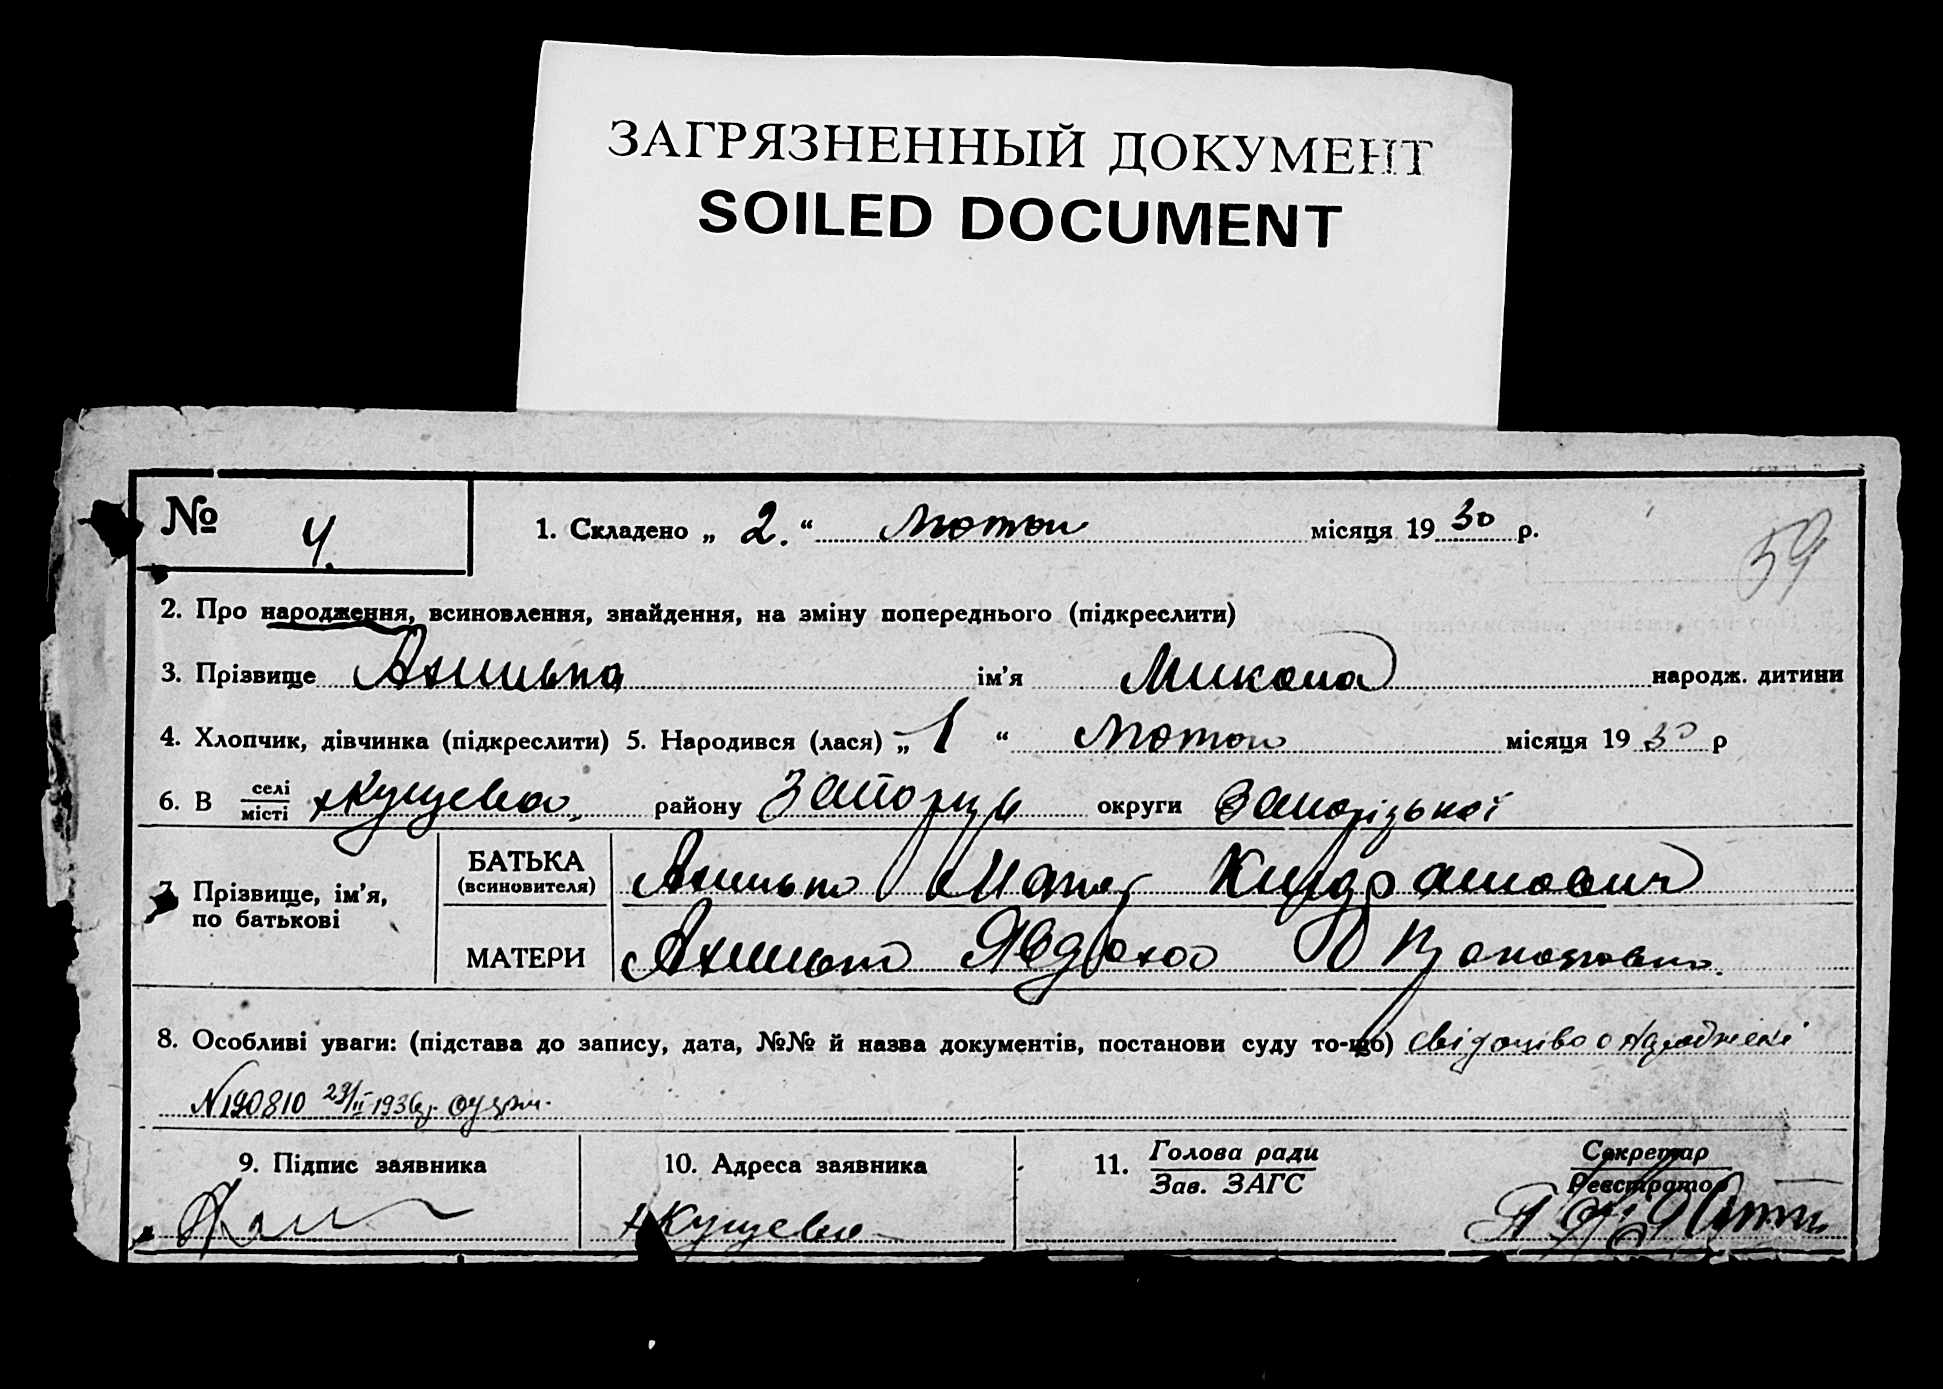 ЗАГРЯЗНЕННЫЙ ДОКУМЕНТ
SOILED DOCUMENT
№ 4.
1. Складено „ 2. “ Лютого місяця 19 30 р.
59
2. Про народження, всиновлення, знайдення, на зміну попереднього (підкреслити)
3. Прізвище ім'я Микола народж. дитини
4. Хлопчик, дівчинка (підкреслити) 5. Народився (лася) „ 1 “ Лютого місяця 19 30 р
6. В селі/місті х Кущево району Запоріж округи Запорізької
7. Прізвище, ім'я, по батькові
БАТЬКА (всиновителя) Кіндратович
МАТЕРИ Явдоха
8. Особливі уваги: (підстава до запису, дата, №№ й назва документів, постанови суду то-що) Свідоцтво о народжені
N 190810 1936р.
9. Підпис заявника 10. Адреса заявника 11. Голова ради/Зав. ЗАГС Секретар/Реєстратор
х Кущево